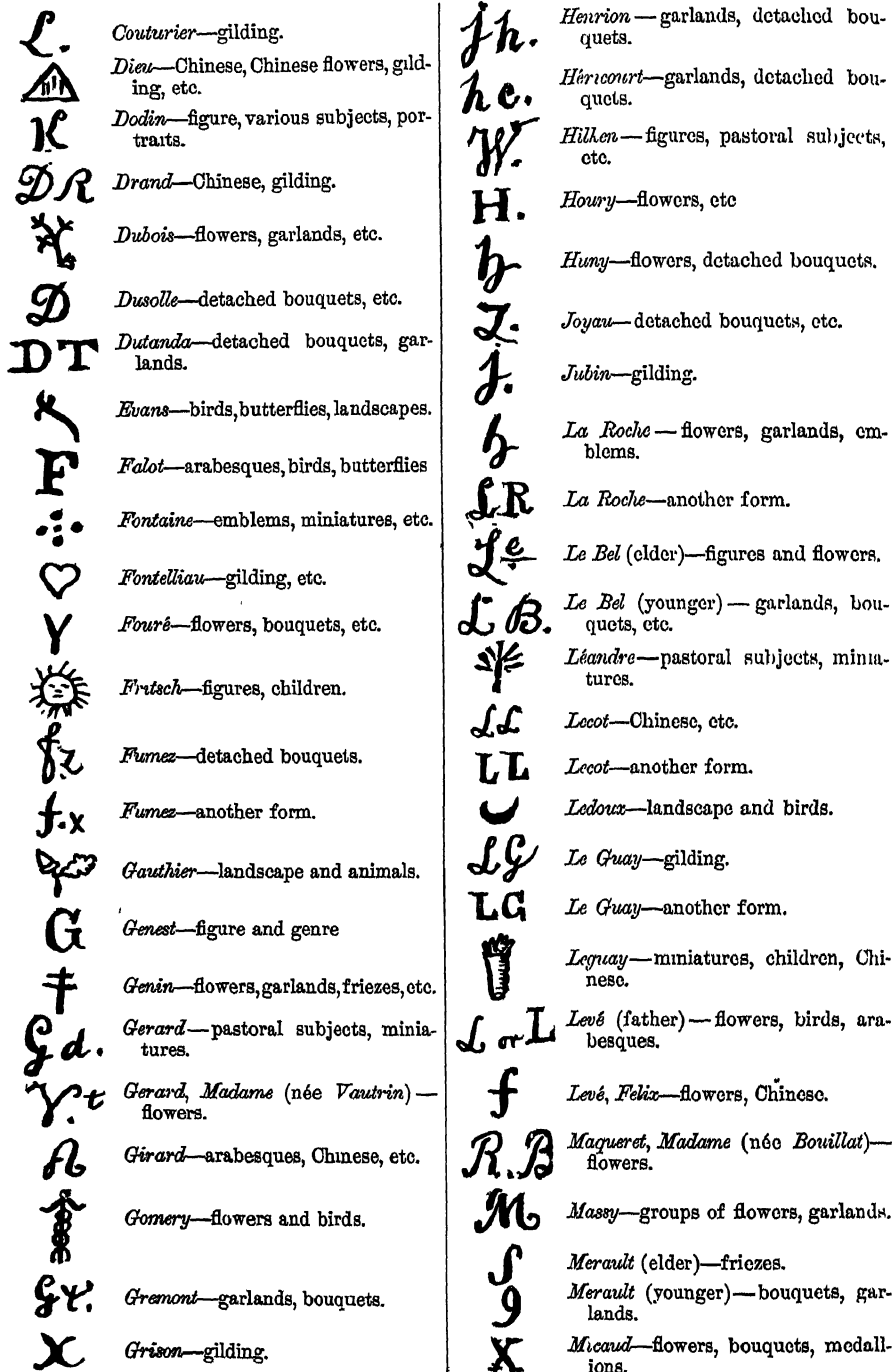 L. Couturier—gilding.
Dieu—Chinese, Chinese flowers, gild-
ing, etc.
K Dodin—figure, various subjects, por-
traits.
D R Drand—Chinese, gilding.
Dubois—flowers, garlands, etc.
D Dusolle—detached bouquets, etc.
DT Dutanda—detached bouquets, gar-
lands.
Evans—birds, butterflies, landscapes.
F Falot—arabesques, birds, butterflies
Fontaine—emblems, miniatures, etc.
Fontelliau—gilding, etc.
Y Fouré—flowers, bouquets, etc.
Fritsch—figures, children.
fz Fumez—detached bouquets.
f.x Fumez—another form.
Gauthier—landscape and animals.
G Genest—figure and genre
Genin—flowers, garlands, friezes, etc.
Gd. Gerard—pastoral subjects, minia-
tures.
V.t Gerard, Madame (née Vautrin)—
flowers.
A Girard—arabesques, Chinese, etc.
Gomery—flowers and birds.
Gt. Gremont—garlands, bouquets.
X Grison—gilding.
jh. Henrion—garlands, detached bou-
quets.
hc. Héricourt—garlands, detached bou-
quets.
W. Hilken—figures, pastoral subjects,
etc.
H. Houry—flowers, etc
h Huny—flowers, detached bouquets.
Z. Joyau—detached bouquets, etc.
j. Jubin—gilding.
h La Roche—flowers, garlands, em-
blems.
LR La Roche—another form.
Le Le Bel (elder)—figures and flowers.
L B. Le Bel (younger)—garlands, bou-
quets, etc.
Léandre—pastoral subjects, minia-
tures.
LL Lecot—Chinese, etc.
LL Lecot—another form.
Ledoux—landscape and birds.
LG Le Guay—gilding.
LG Le Guay—another form.
Leguay—miniatures, children, Chi-
nese.
L or L Levé (father)—flowers, birds, ara-
besques.
f Levé, Felix—flowers, Chinese.
R.B Maqueret, Madame (née Bouillat)—
flowers.
M Massy—groups of flowers, garlands.
S Merault (elder)—friezes.
9 Merault (younger)—bouquets, gar-
lands.
X Micaud—flowers, bouquets, medall-
ions.